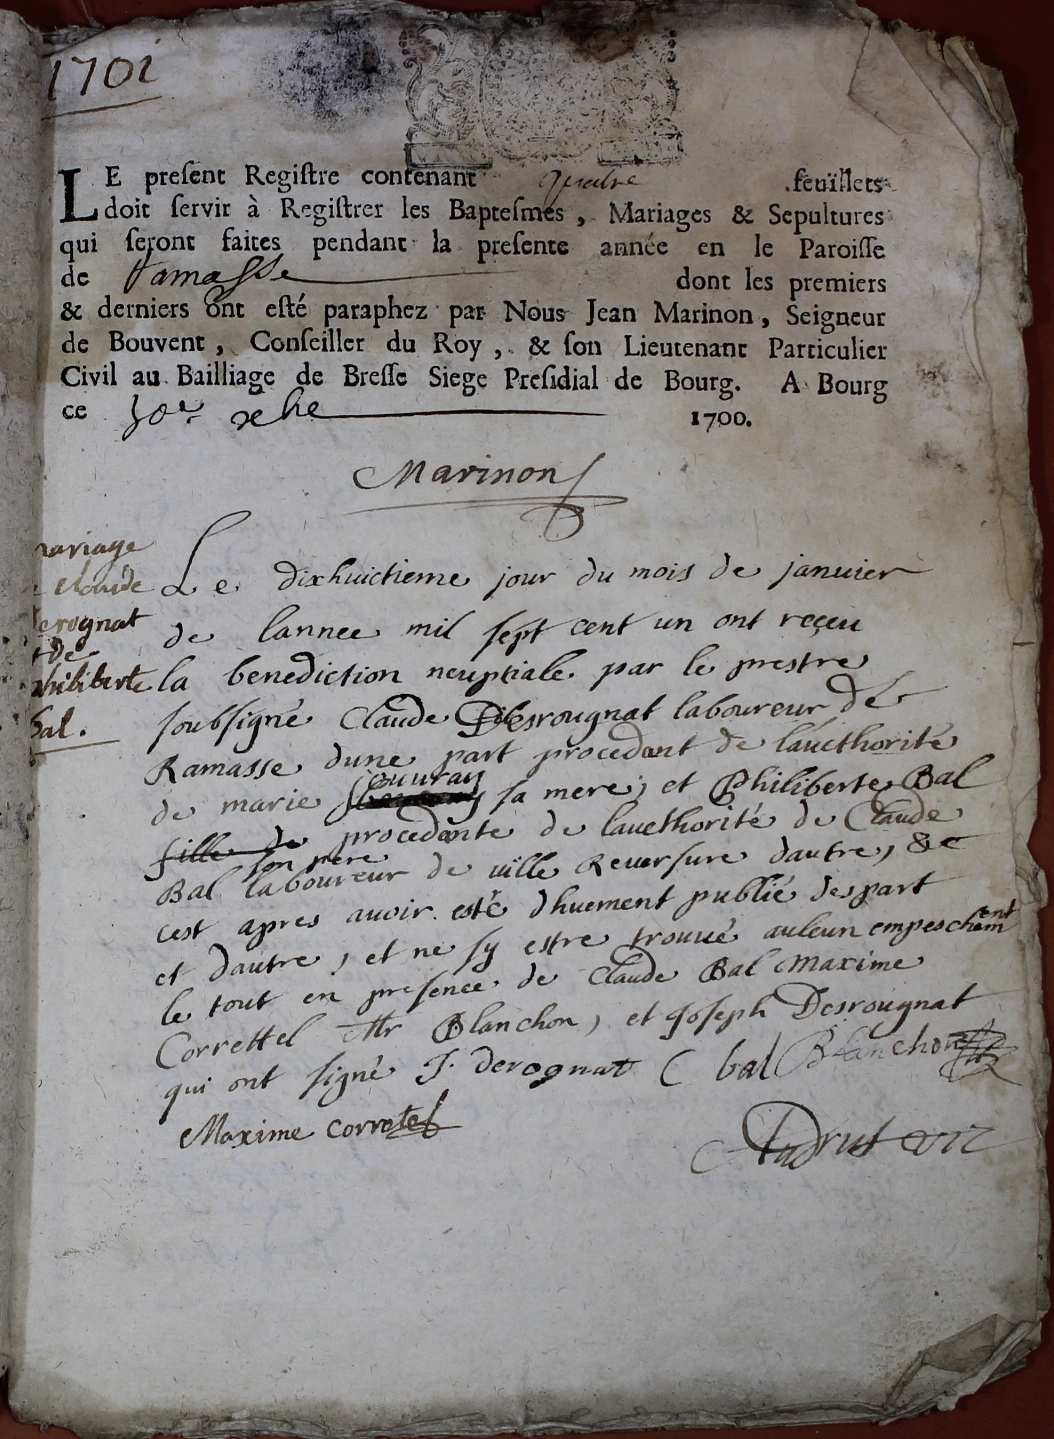 1701
LE preſent Regiſtre contenant quatre feuillets
doit ſervir à Regiſtrer les Bapteſmes, Mariages & Sepultures
qui ſeront faites pendant la preſente année en le Paroiſſe
de Ramasse dont les premiers
& derniers ont eſté paraphez par Nous Jean Marinon, Seigneur
de Bouvent, Conſeiller du Roy, & ſon Lieutenant Particulier
Civil au Bailliage de Breſſe Siege Preſidial de Bourg. A Bourg
ce 30e xbre 1700.
Marinon
mariage
Claude
derognat
et de
philiberte
bal.
Le dixhuictieme jour du mois de januier
de lannee mil sept cent un ont reçeu
la benediction neuptiale par le prestre
soubsigné Claude Desrougnat laboureur de
Ramasse dune part procedant de laucthorité
de marie Couuray sa mere, et Philiberte Bal
fille de procedante de laucthorité de Claude
Bal son pere laboureur de ville Reuersure dautre, &c
cest apres auoir esté dhuement publié despart
et dautre, et ne sy estre trouué auleun empeschement
le tout en presence de Claude Bal Maxime
Correttel Mr Blanchon, et Joseph Desrougnat
qui ont signé J. derognat C bal Blanchon
Maxime corretel